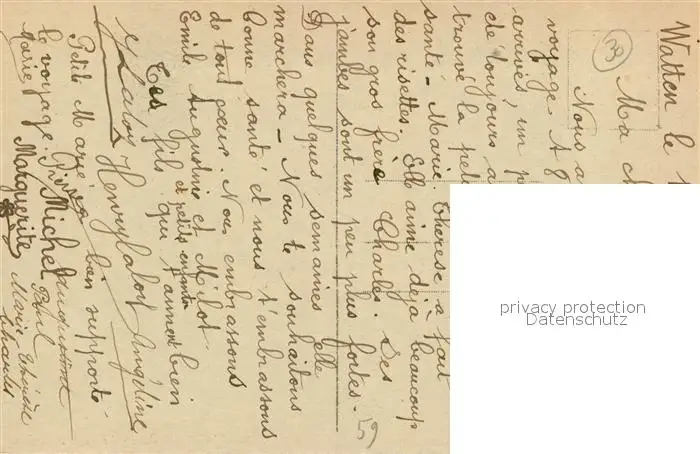 Watten le
Ma ch
Nous a
voyage. A 8
arrivés, un p
de toujours a
trouvé la peti
santé - Marie Thérèse a fait
des risettes. Elle aime déjà beaucoup
son gros frère Charles. Ses
jambes sont un peu plus fortes.
Dans quelques semaines elle
marchera - Nous te souhaitons
bonne santé et nous t'embrassons
de tout cœur. Nous embrassons
Emile Augustine et Milot.
Tes fils et petits enfants qui t'aiment bien
Henry Angéline
Petite Marie a bien supporté
le voyage. Michel Paul
Marie Marguerite Marie Thérèse
Charles
39
59
privacy protection
Datenschutz